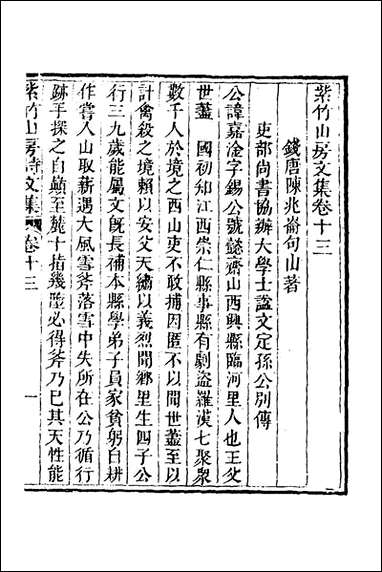 紫竹山房文集卷十三
錢唐陳兆崙句山著
吏部尚書協辦大學士諡文定孫公別傳
公諱嘉淦字錫公號懿齋山西興縣臨河里人也王父
世藎 國初知江西崇仁縣事縣有劇盜羅漢七聚眾
數千人於境之西山吏不敢捕因匿不以聞世藎至以
計禽殺之境賴以安父天繡以義烈聞鄉里生四子公
行三九歲能屬文旣長補本縣學弟子員家貧躬自耕
作嘗入山取薪遇大風雪斧落雪中失所在公乃循行
跡手探之自巔至麓十指幾墮必得斧乃已其天性能
紫竹山房詩文集 卷十三 一